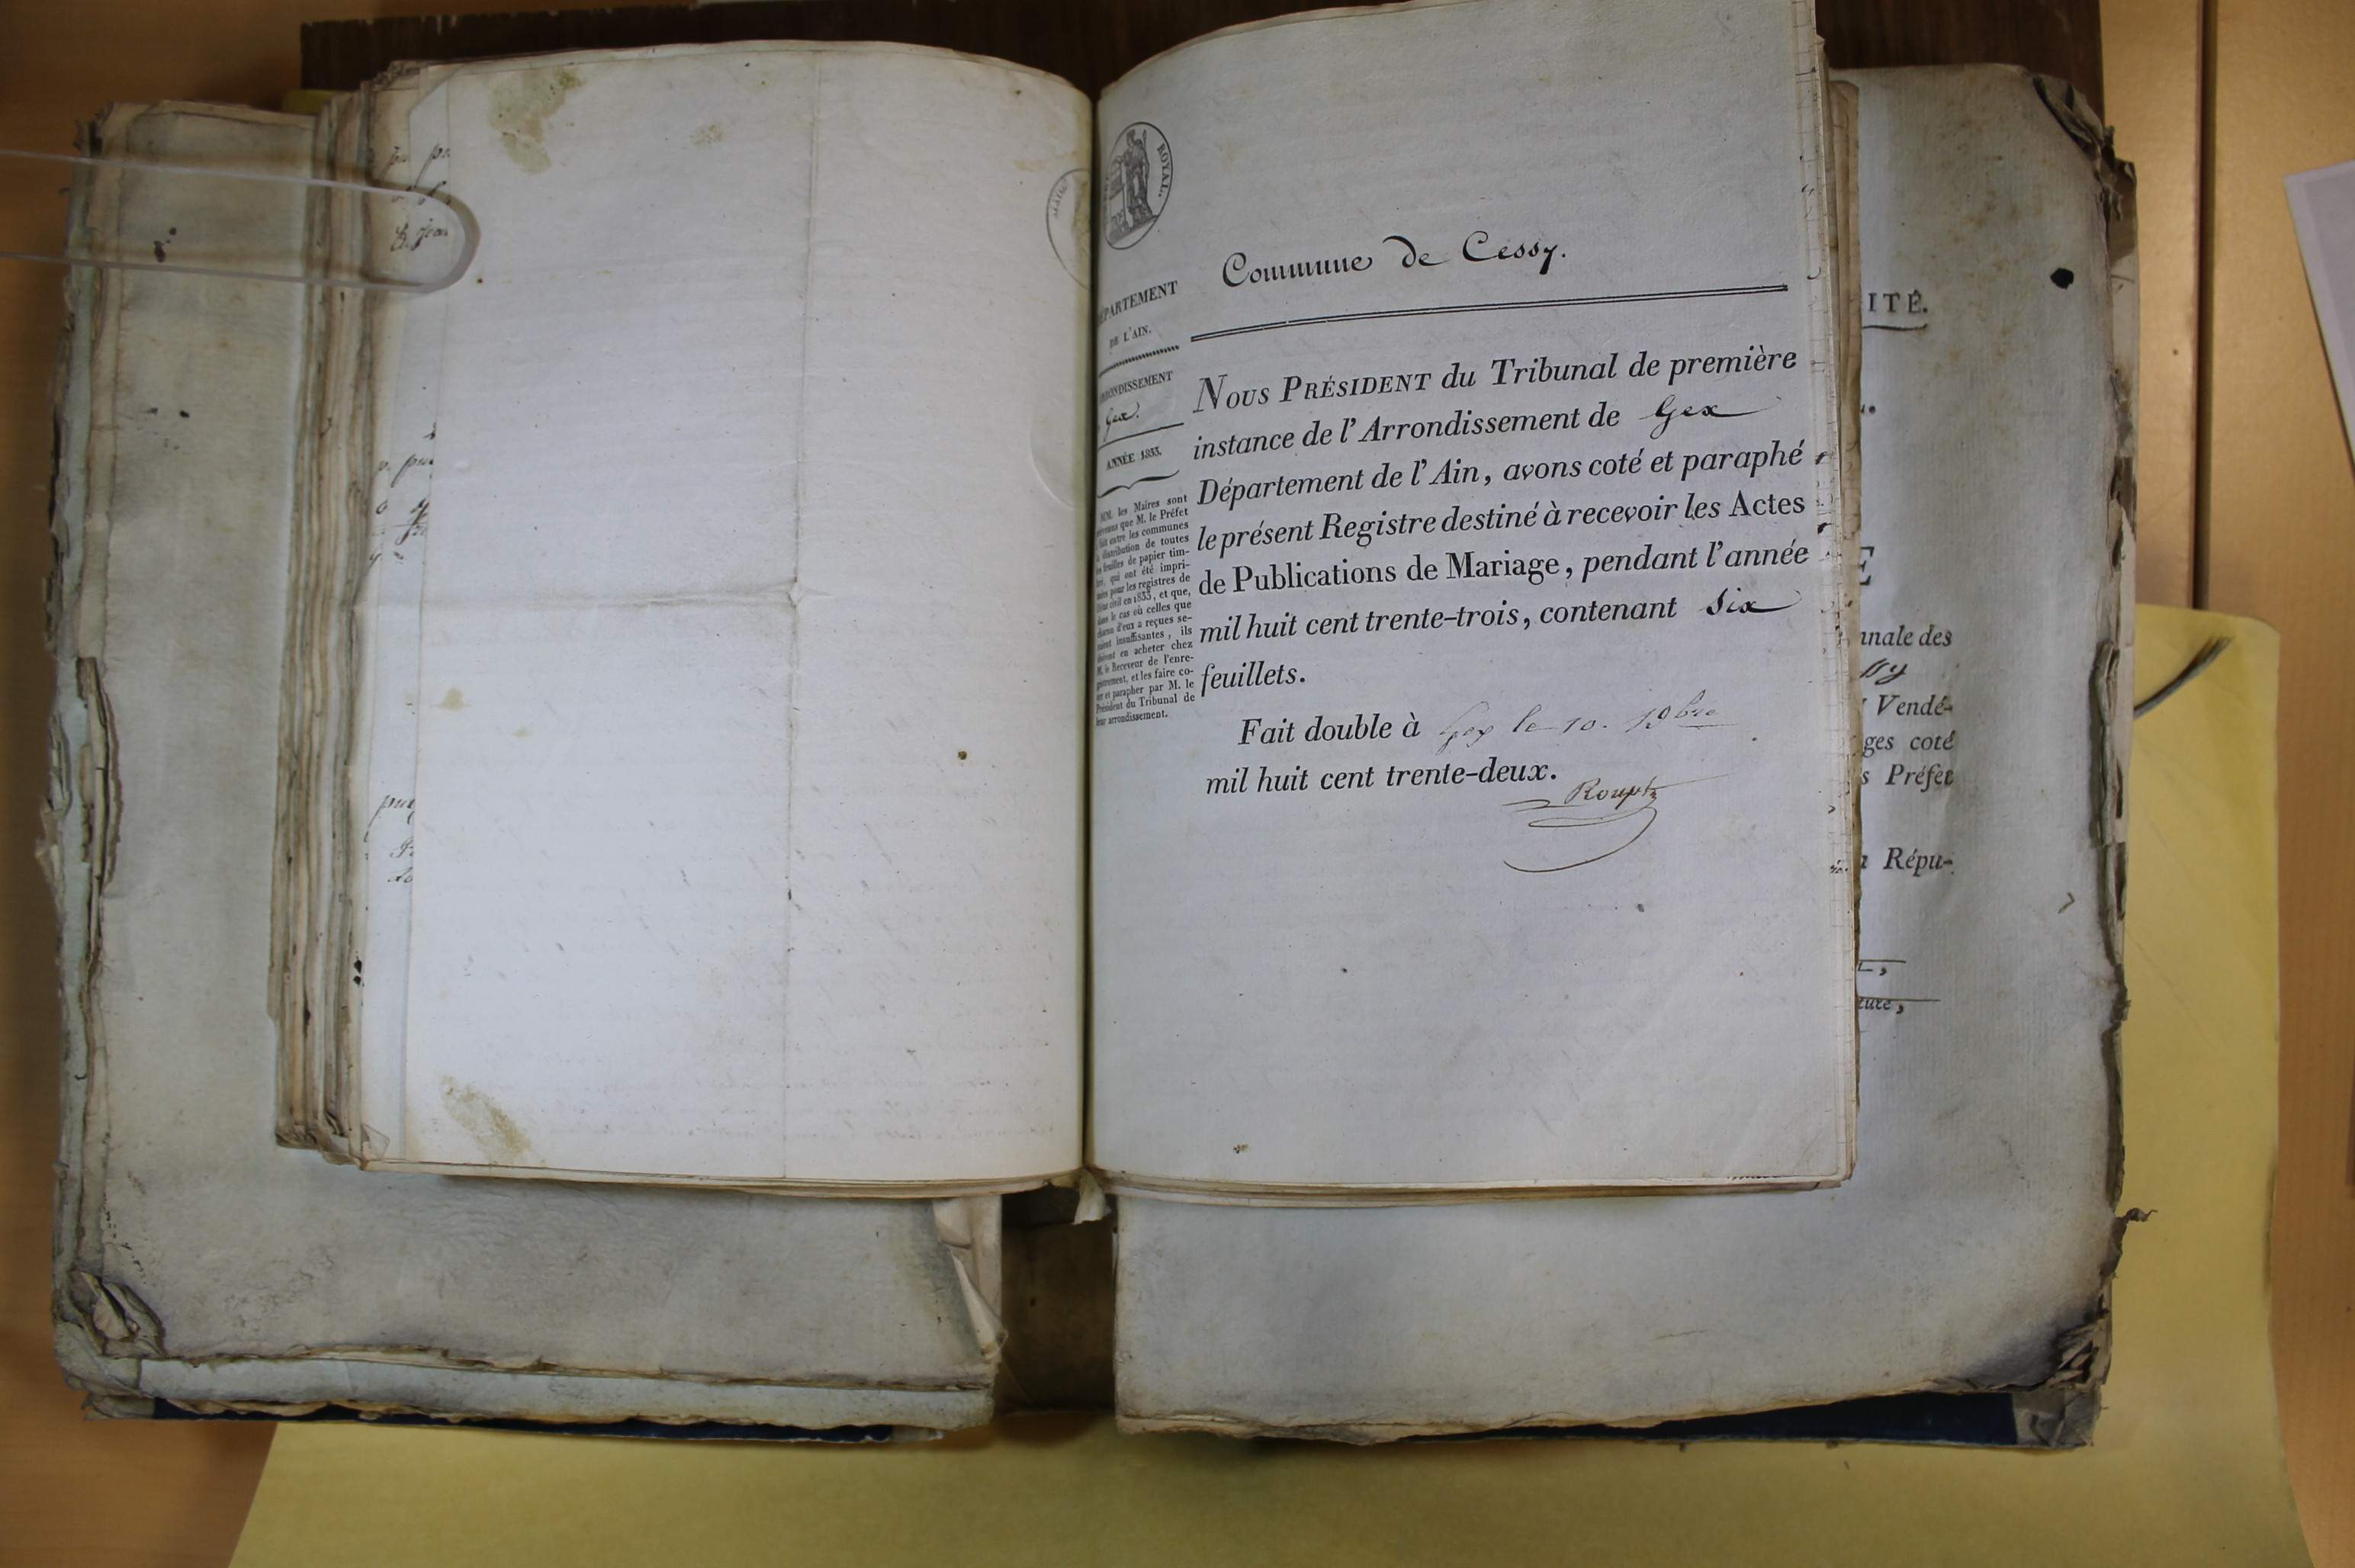 ROYAL.
Commune de Cessy.
DÉPARTEMENT
DE L'AIN.
ARRONDISSEMENT
Gex.
ANNÉE 1833.
MM. les Maires sont
prévenus que M. le Préfet
fait entre les communes
la distribution de toutes
les feuilles de papier tim-
bré, qui ont été impri-
mées pour les registres de
l'état civil en 1833, et que,
dans le cas où celles que
chacun d'eux a reçues se-
raient insuffisantes, ils
doivent en acheter chez
M. le Receveur de l'enre-
gistrement, et les faire co-
ter et parapher par M. le
Président du Tribunal de
leur arrondissement.
NOUS PRÉSIDENT du Tribunal de première
instance de l'Arrondissement de Gex
Département de l'Ain, avons coté et paraphé
le présent Registre destiné à recevoir les Actes
de Publications de Mariage, pendant l'année
mil huit cent trente-trois, contenant six
feuillets.
Fait double à Gex le 10. Xbre
mil huit cent trente-deux.
ITÉ.
E
nnale des
ssy
Vendé-
ges coté
s Préfet
a Répu-
L,
ture,